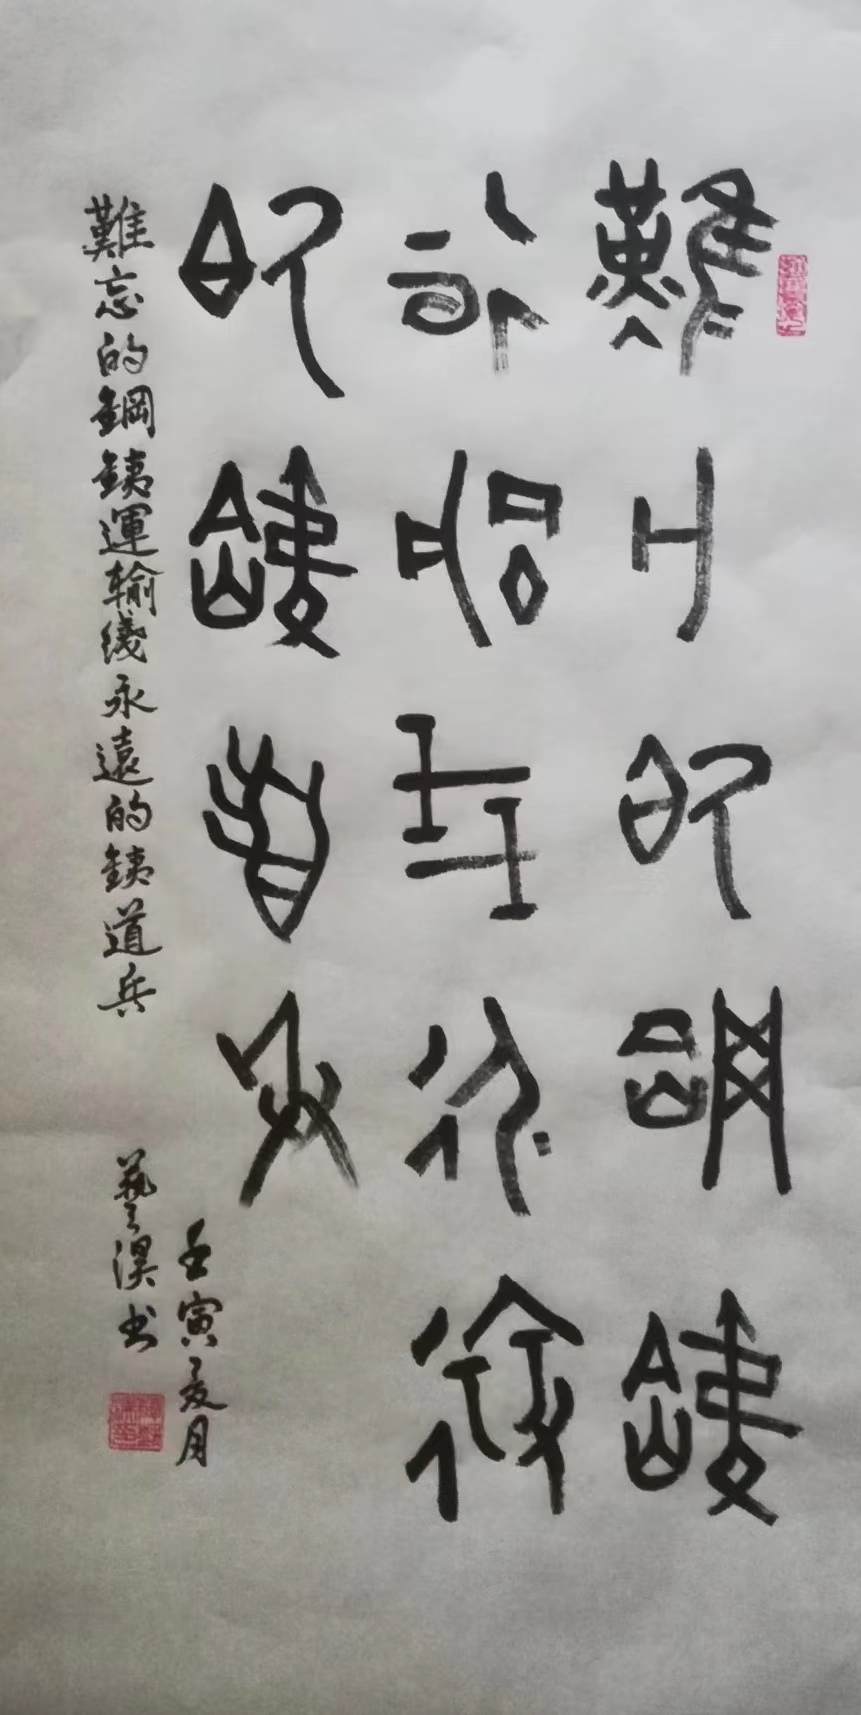 難忘的鋼鐵
運輸綫永遠
的鐵道兵
難忘的鋼銕運輸綫永遠的銕道兵
壬寅夏月
藝淏书